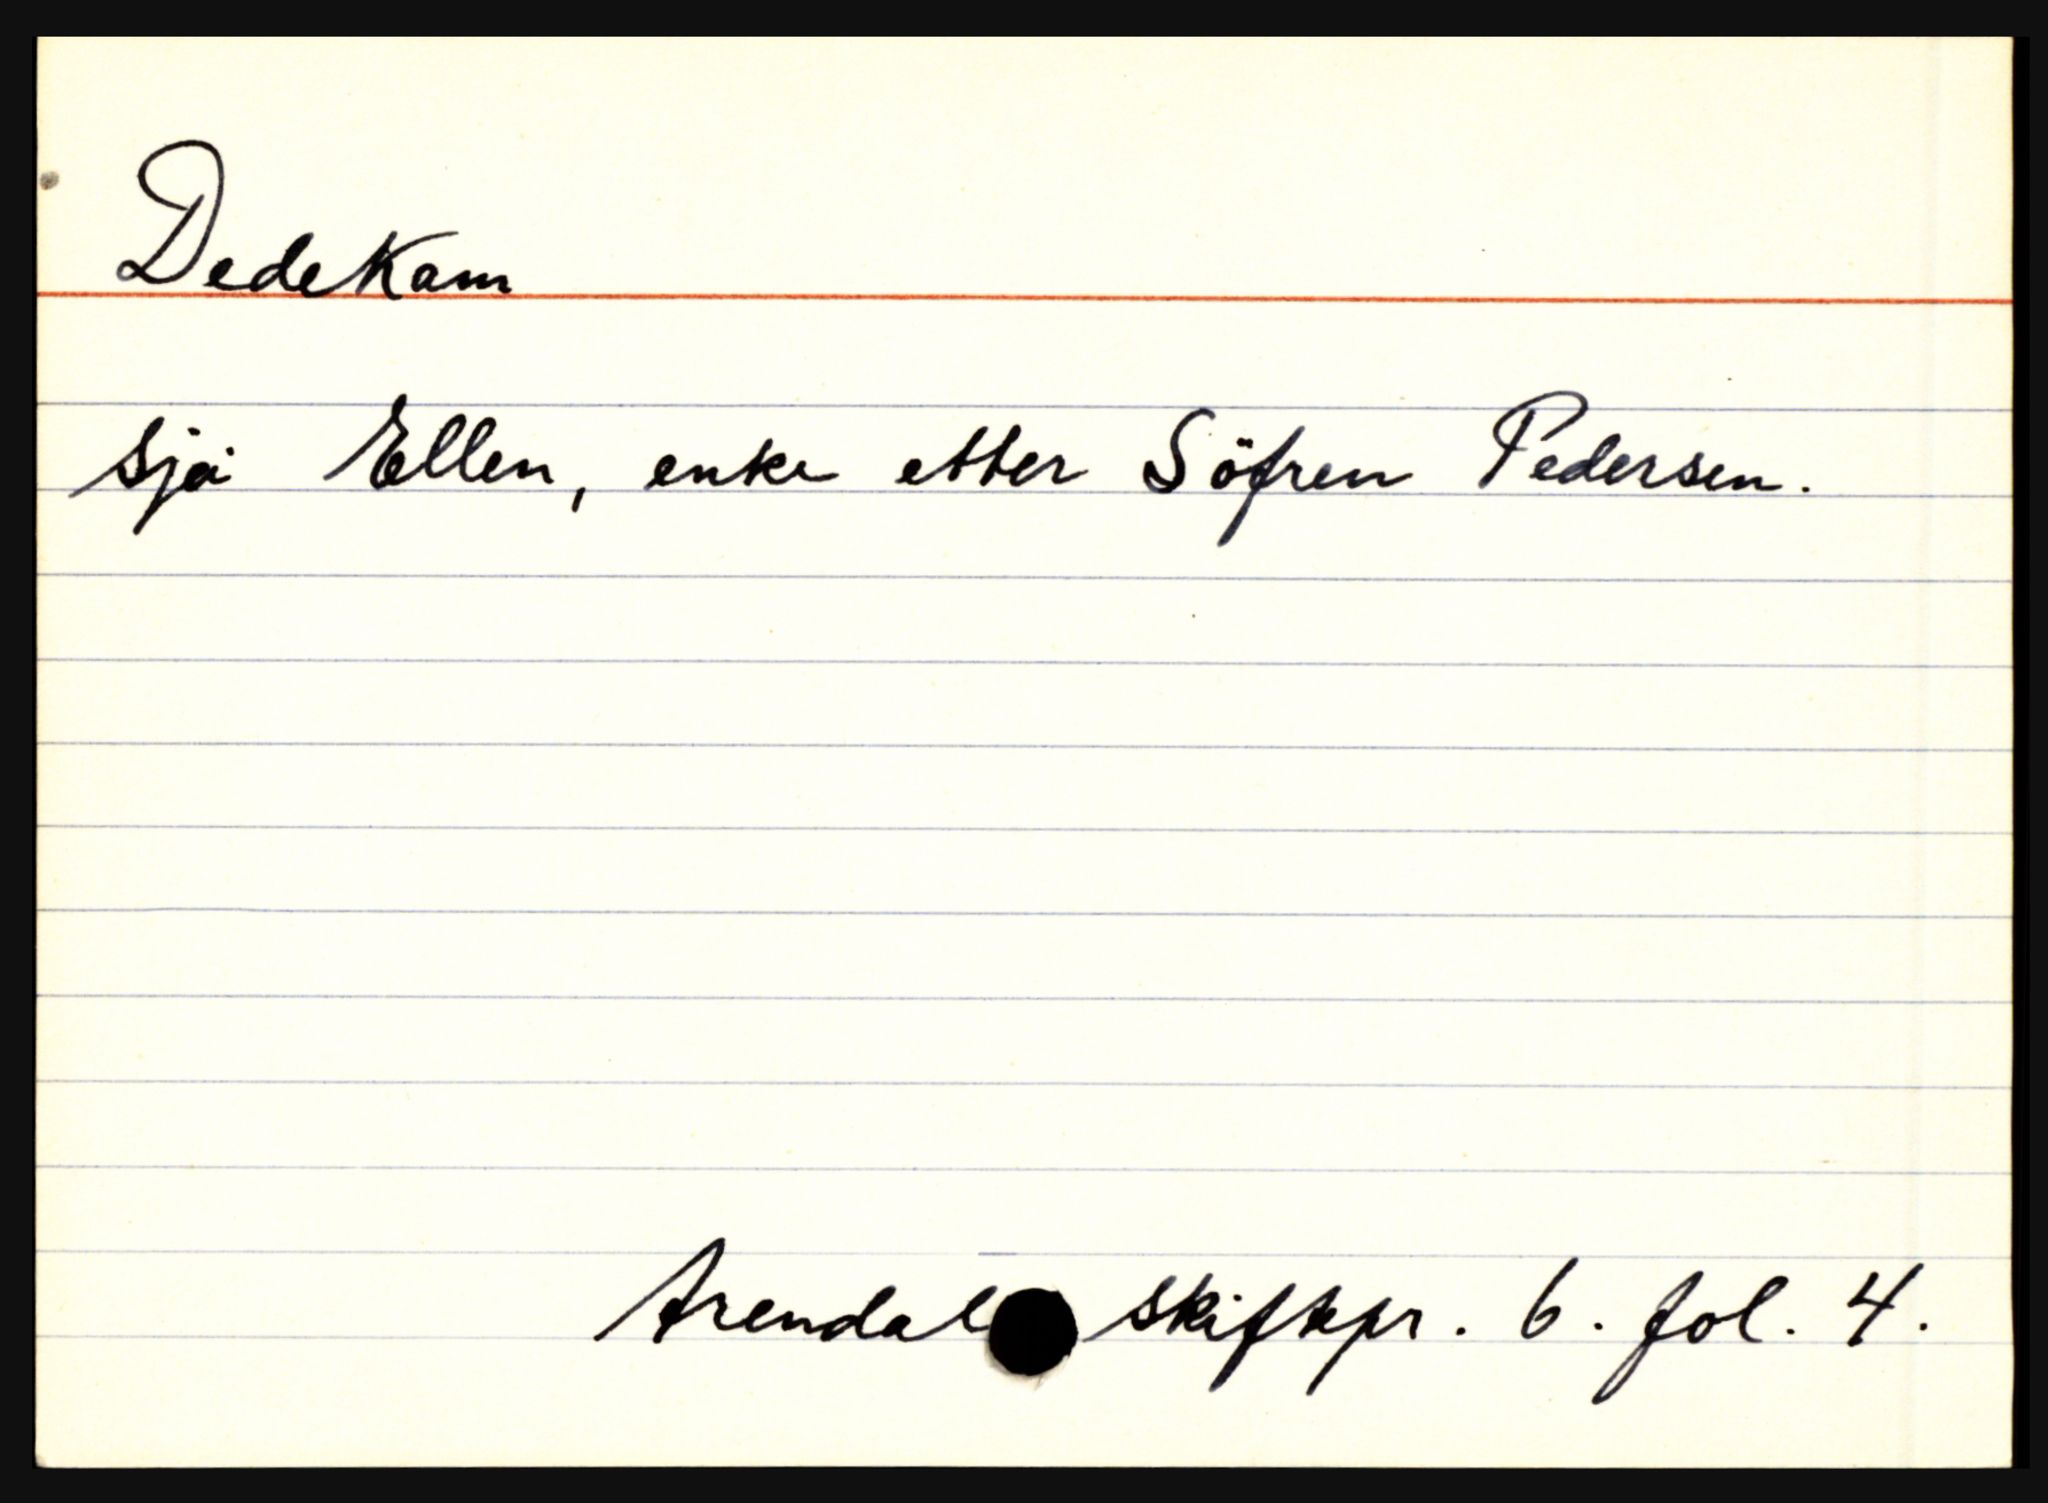 Dedekam
sjå Ellen, enke etter Söfren Pedersen.
Arendal skiftpr. 6. fol. 4.